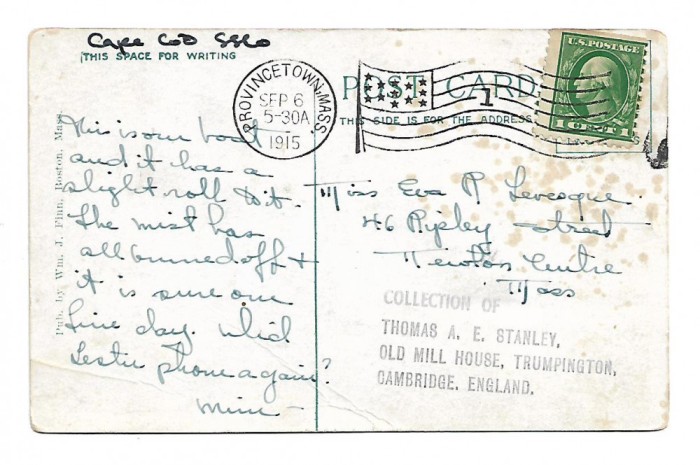 Cape Cod SSCo
THIS SPACE FOR WRITING
PROVINCETOWN, MASS.
SEP 6
5-30A
1915
1
POST CARD
THIS SIDE IS FOR THE ADDRESS
U.S. POSTAGE
1 CENT 1
Pub. by Wm. J. Finn, Boston, Mass.
This is our boat
and it has a
slight roll to it.
The mist has
all burned off +
it is sure one
fine day. Did
Leslie phone again?
Mim
Miss Eva R Levesque
46 Ripley Street
Newton Centre
Mass
COLLECTION OF
THOMAS A. E. STANLEY,
OLD MILL HOUSE, TRUMPINGTON,
CAMBRIDGE, ENGLAND.